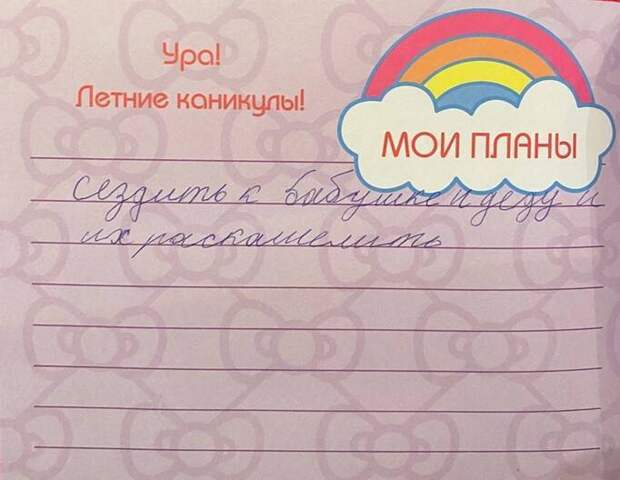 Ура!
Летние каникулы!
МОИ ПЛАНЫ
сездить к бабушке и деду и
их раскашелить